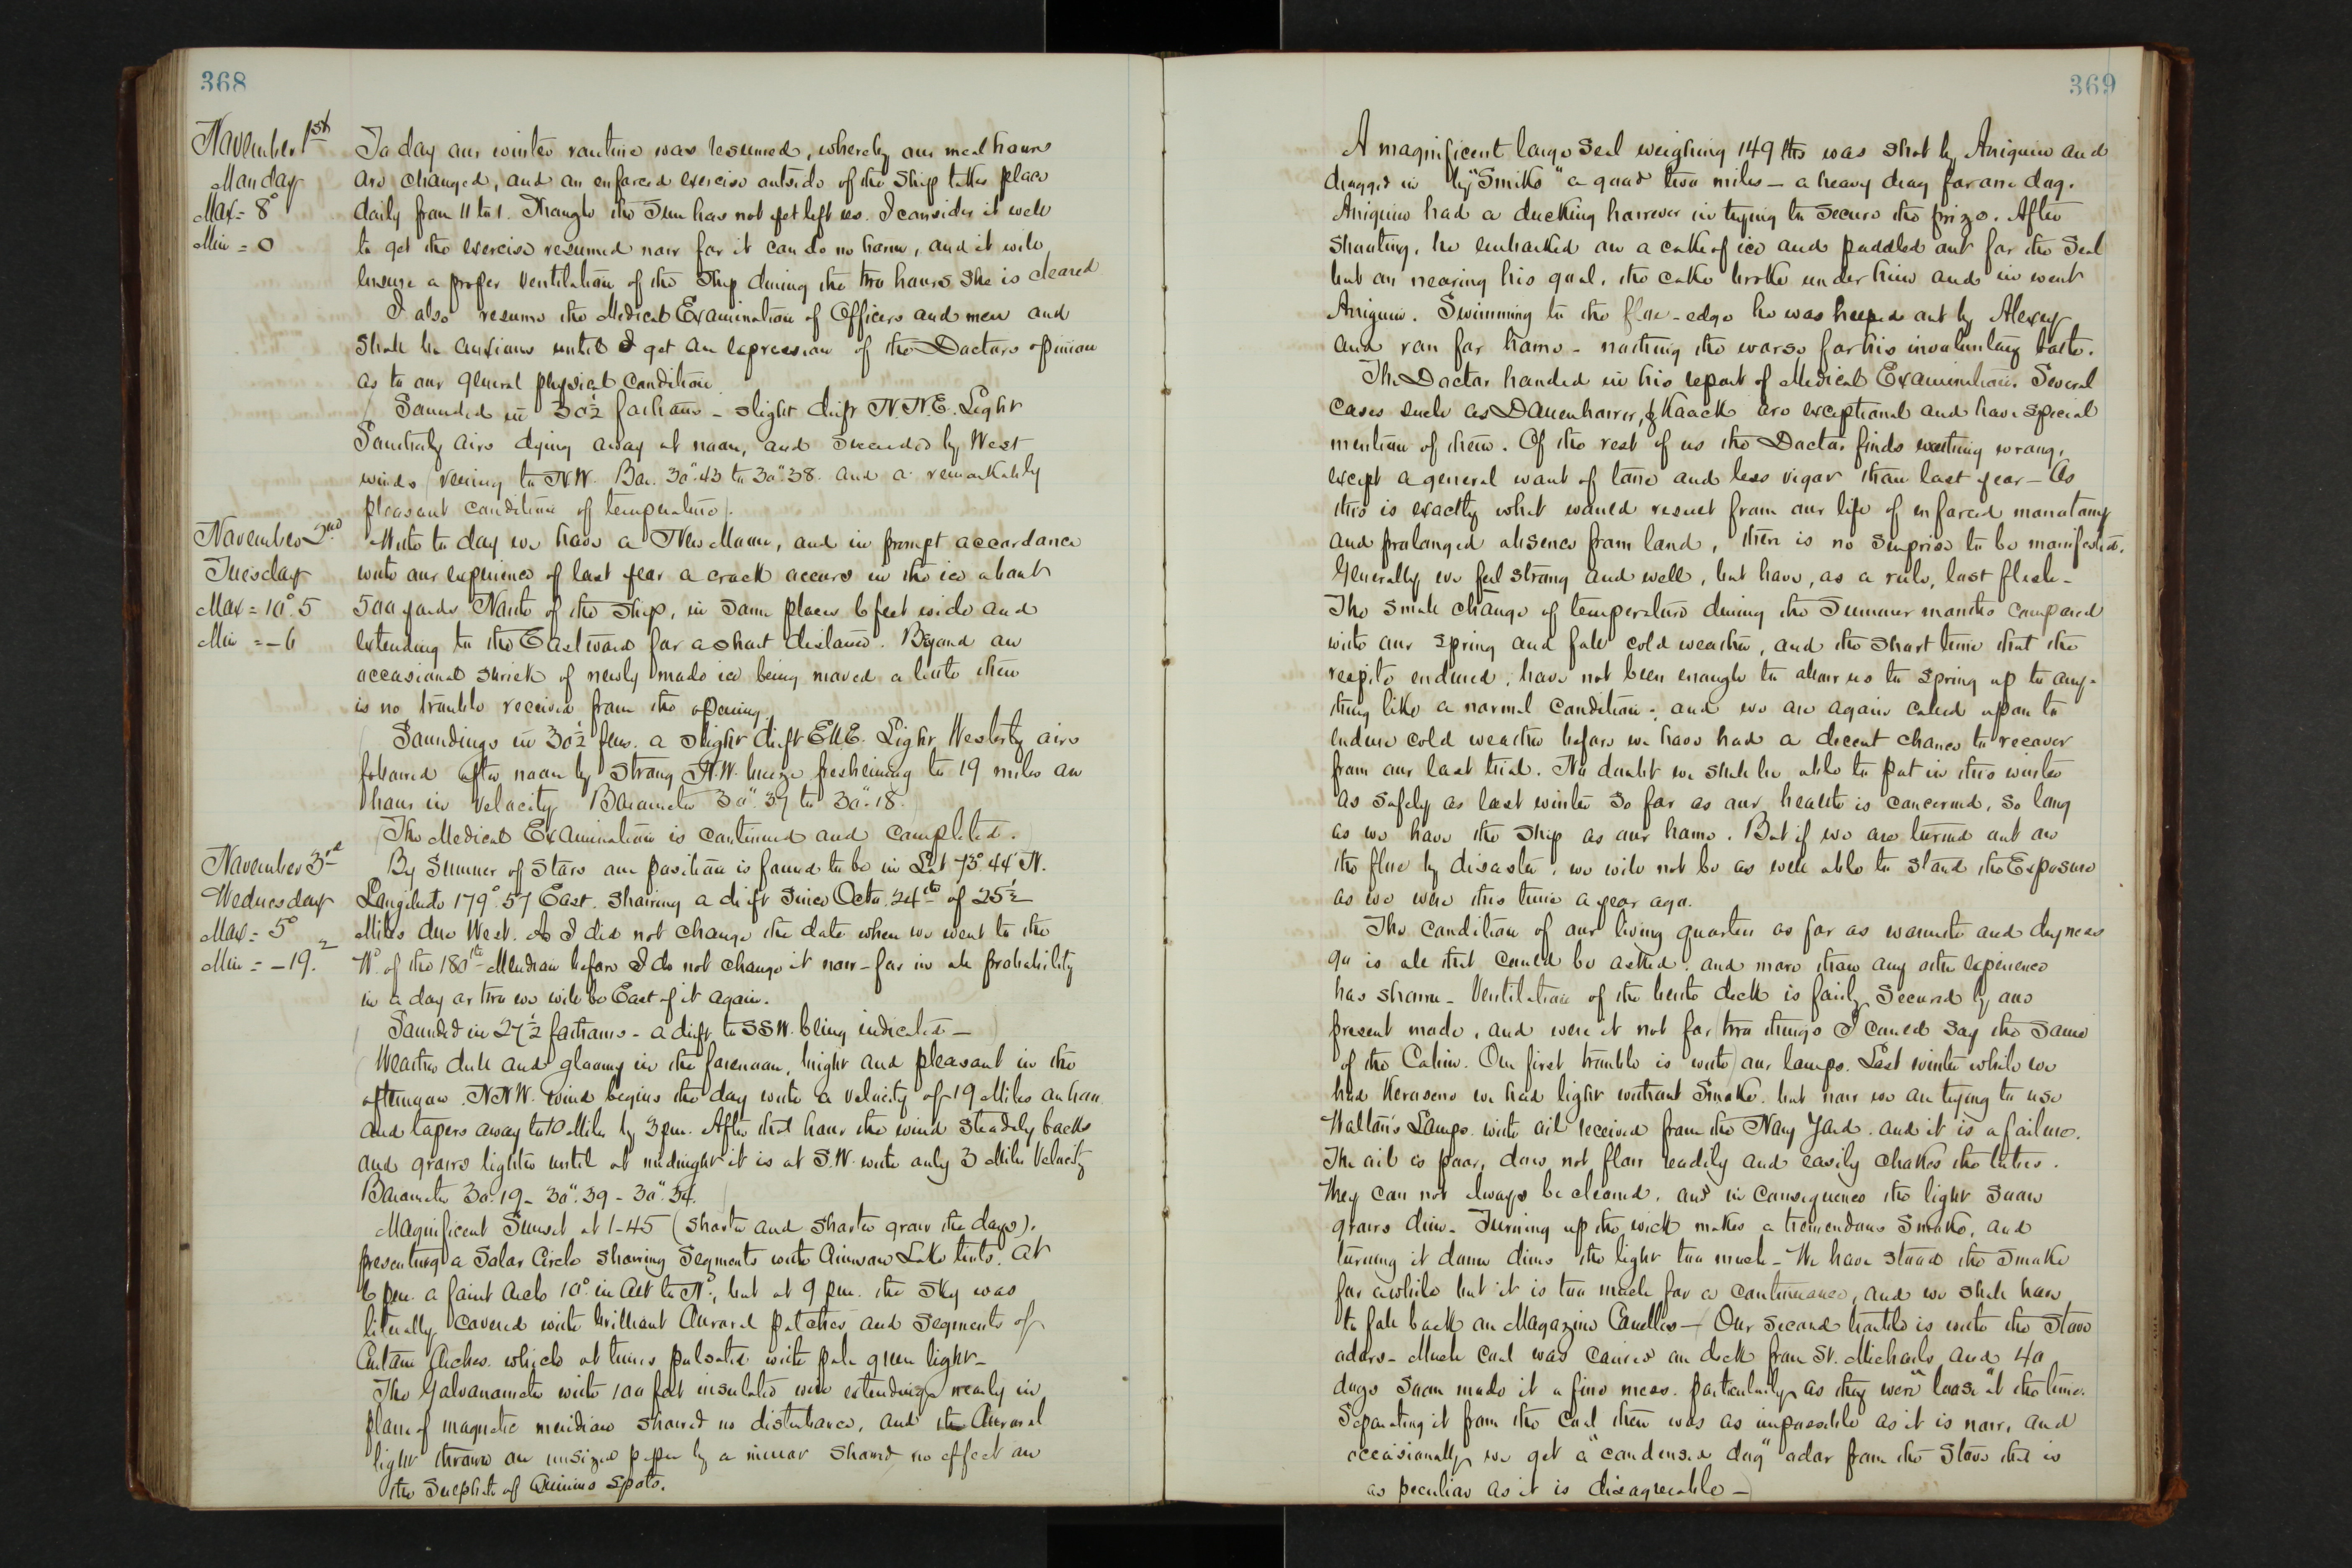 368
November 1st
Monday
Max = 8°
Min = 0
To day our winter routine was resumed, whereby our meal hours
are changed, and an enforced exercise outside of the ship takes place
daily from 11 to 1. Though the Sun has not yet left us. I consider it well
to get the exercise resumed now for it can do no harm, and it will
insure a proper ventilation of the Ship during the two hours She is cleared
I also resume the Medical Examination of Officers and men and
shall be anxious until I get an expression of the Doctors opinion
as to our general physical condition
Sounded in 30½ fathoms - slight drift N.N.E. Light
Southerly airs dying away at noon, and succeeded by West
winds veering to N.W. Bar. 30".43 to 30".38. and a remarkably
pleasant condition of temperature.
November 2nd
Tuesday
Max = 10°.5
Min = -6
With to day we have a New Moon, and in prompt accordance
with our experience of last year a crack occurs in the ice about
500 yards North of the Ship, in some places 6 feet wide and
extending to the Eastward for a short distance. Beyond an
occasional shriek of newly made ice being moved a little there
is no trouble received from the opening.
Soundings in 30½ fms. a slight drift ENE. Light Westerly airs
followed after noon by strong N.W. breeze freshening to 19 miles an
hour in velocity Barometer 30".39 to 30".18.
The Medical Examination is continued and completed.
November 3rd
Wednesday
Max = 5°
Min = -19.2
By Sumner of Stars our position is found to be in Lat 73° 44' N.
Longitude 179° 57' East. Showing a drift since Octo. 24th of 25½
Miles due West. As I did not change the date when we went to the
W° of the 180th Meridian before I do not change it now - for in all probability
in a day or two we will be East of it again.
Sounded in 27½ fathoms - a drift to SSW. being indicated -
Weather dull and gloomy in the forenoon, bright and pleasant in the
afternoon. NNW. wind begins the day with a velocity of 19 Miles an hour
and tapers away to 10 Miles by 3 pm. After that hour the wind steadily backs
and grows lighter until at midnight it is at S.W. with only 3 Miles Velocity
Barometer 30.19 - 30".39 - 30".34.
Magnificent Sunset at 1-45 (shorter and shorter grow the days).
presenting a Solar Circle showing Segments with Crimson Lake tints. At
6 pm. a faint Arch 10° in Alt to N°, but at 9 pm. the sky was
literally covered with brilliant Auroral patches and segments of
Curtain Arches. which at times pulsated with pale green light -
The Galvanometer with 100 feet insulated wire extending nearly in
plane of magnetic meridian showed no disturbance, and the Auroral
light thrown on unsized paper by a mirror showed no effect on
the Sulphate of Quinine spots.
369
A magnificent large Seal weighing 149 lbs was shot by Aniguin and
dragged in by "Smike" a good two miles - a heavy drag for one dog.
Aniguin had a ducking however in trying to secure the prize. After
shooting, he embarked on a cake of ice and paddled out for the Seal
but on nearing his goal, the cake broke under him and in went
Aniguin. Swimming to the floe-edge he was helped out by Alexey
and ran for home - nothing the worse for his involuntary bath.
The Doctor handed in his report of Medical Examination. Several
cases such as Danenhower, & Kaack are exceptional and have special
mention of them. Of the rest of us the Doctor finds nothing wrong,
except a general want of tone and less vigor than last year - As
this is exactly what would result from our life of enforced monotony
and prolonged absence from land, there is no surprise to be manifested.
Generally we feel strong and well, but have, as a rule, lost flesh -
The small change of temperature during the Summer months compared
with our spring and fall cold weather, and the short time that the
respite endured, have not been enough to allow us to spring up to any-
thing like a normal condition; and we are again called upon to
endure cold weather before we have had a decent chance to recover
from our last trial. No doubt we shall be able to put in this winter
as safely as last winter so far as our health is concerned, so long
as we have the Ship as our home. But if we are turned out on
the floe by disaster, we will not be as well able to stand the Exposure
as we were this time a year ago.
The condition of our living quarters as far as warmth and dryness
go is all that could be asked, and more than any other experience
has shown - Ventilation of the berth deck is fairly secured by our
present mode, and were it not for two things I could say the same
of the Cabin. Our first trouble is with our lamps. Last winter while we
had Kerosene we had light without Smoke. but now we are trying to use
Walton's Lamps. with oil received from the Navy Yard. and it is a failure.
The oil is poor, does not flow readily and easily chokes the tubes.
They can not always be cleaned, and in consequence the light soon
grows dim. Turning up the wick makes a tremendous Smoke, and
turning it down dims the light too much - We have stood the Smoke
for awhile but it is too much for a continuance, and we shall have
to fall back on Magazine Candles - Our second trouble is with the Stove
odors - Much coal was carried on deck from St. Michaels and 40
dogs soon made it a fine mess. particularly as they were "loose" at the time.
Separating it from the coal then was as impossible as it is now, and
occasionally we get a "condensed dog" odor from the Stove that is
as peculiar as it is disagreeable -